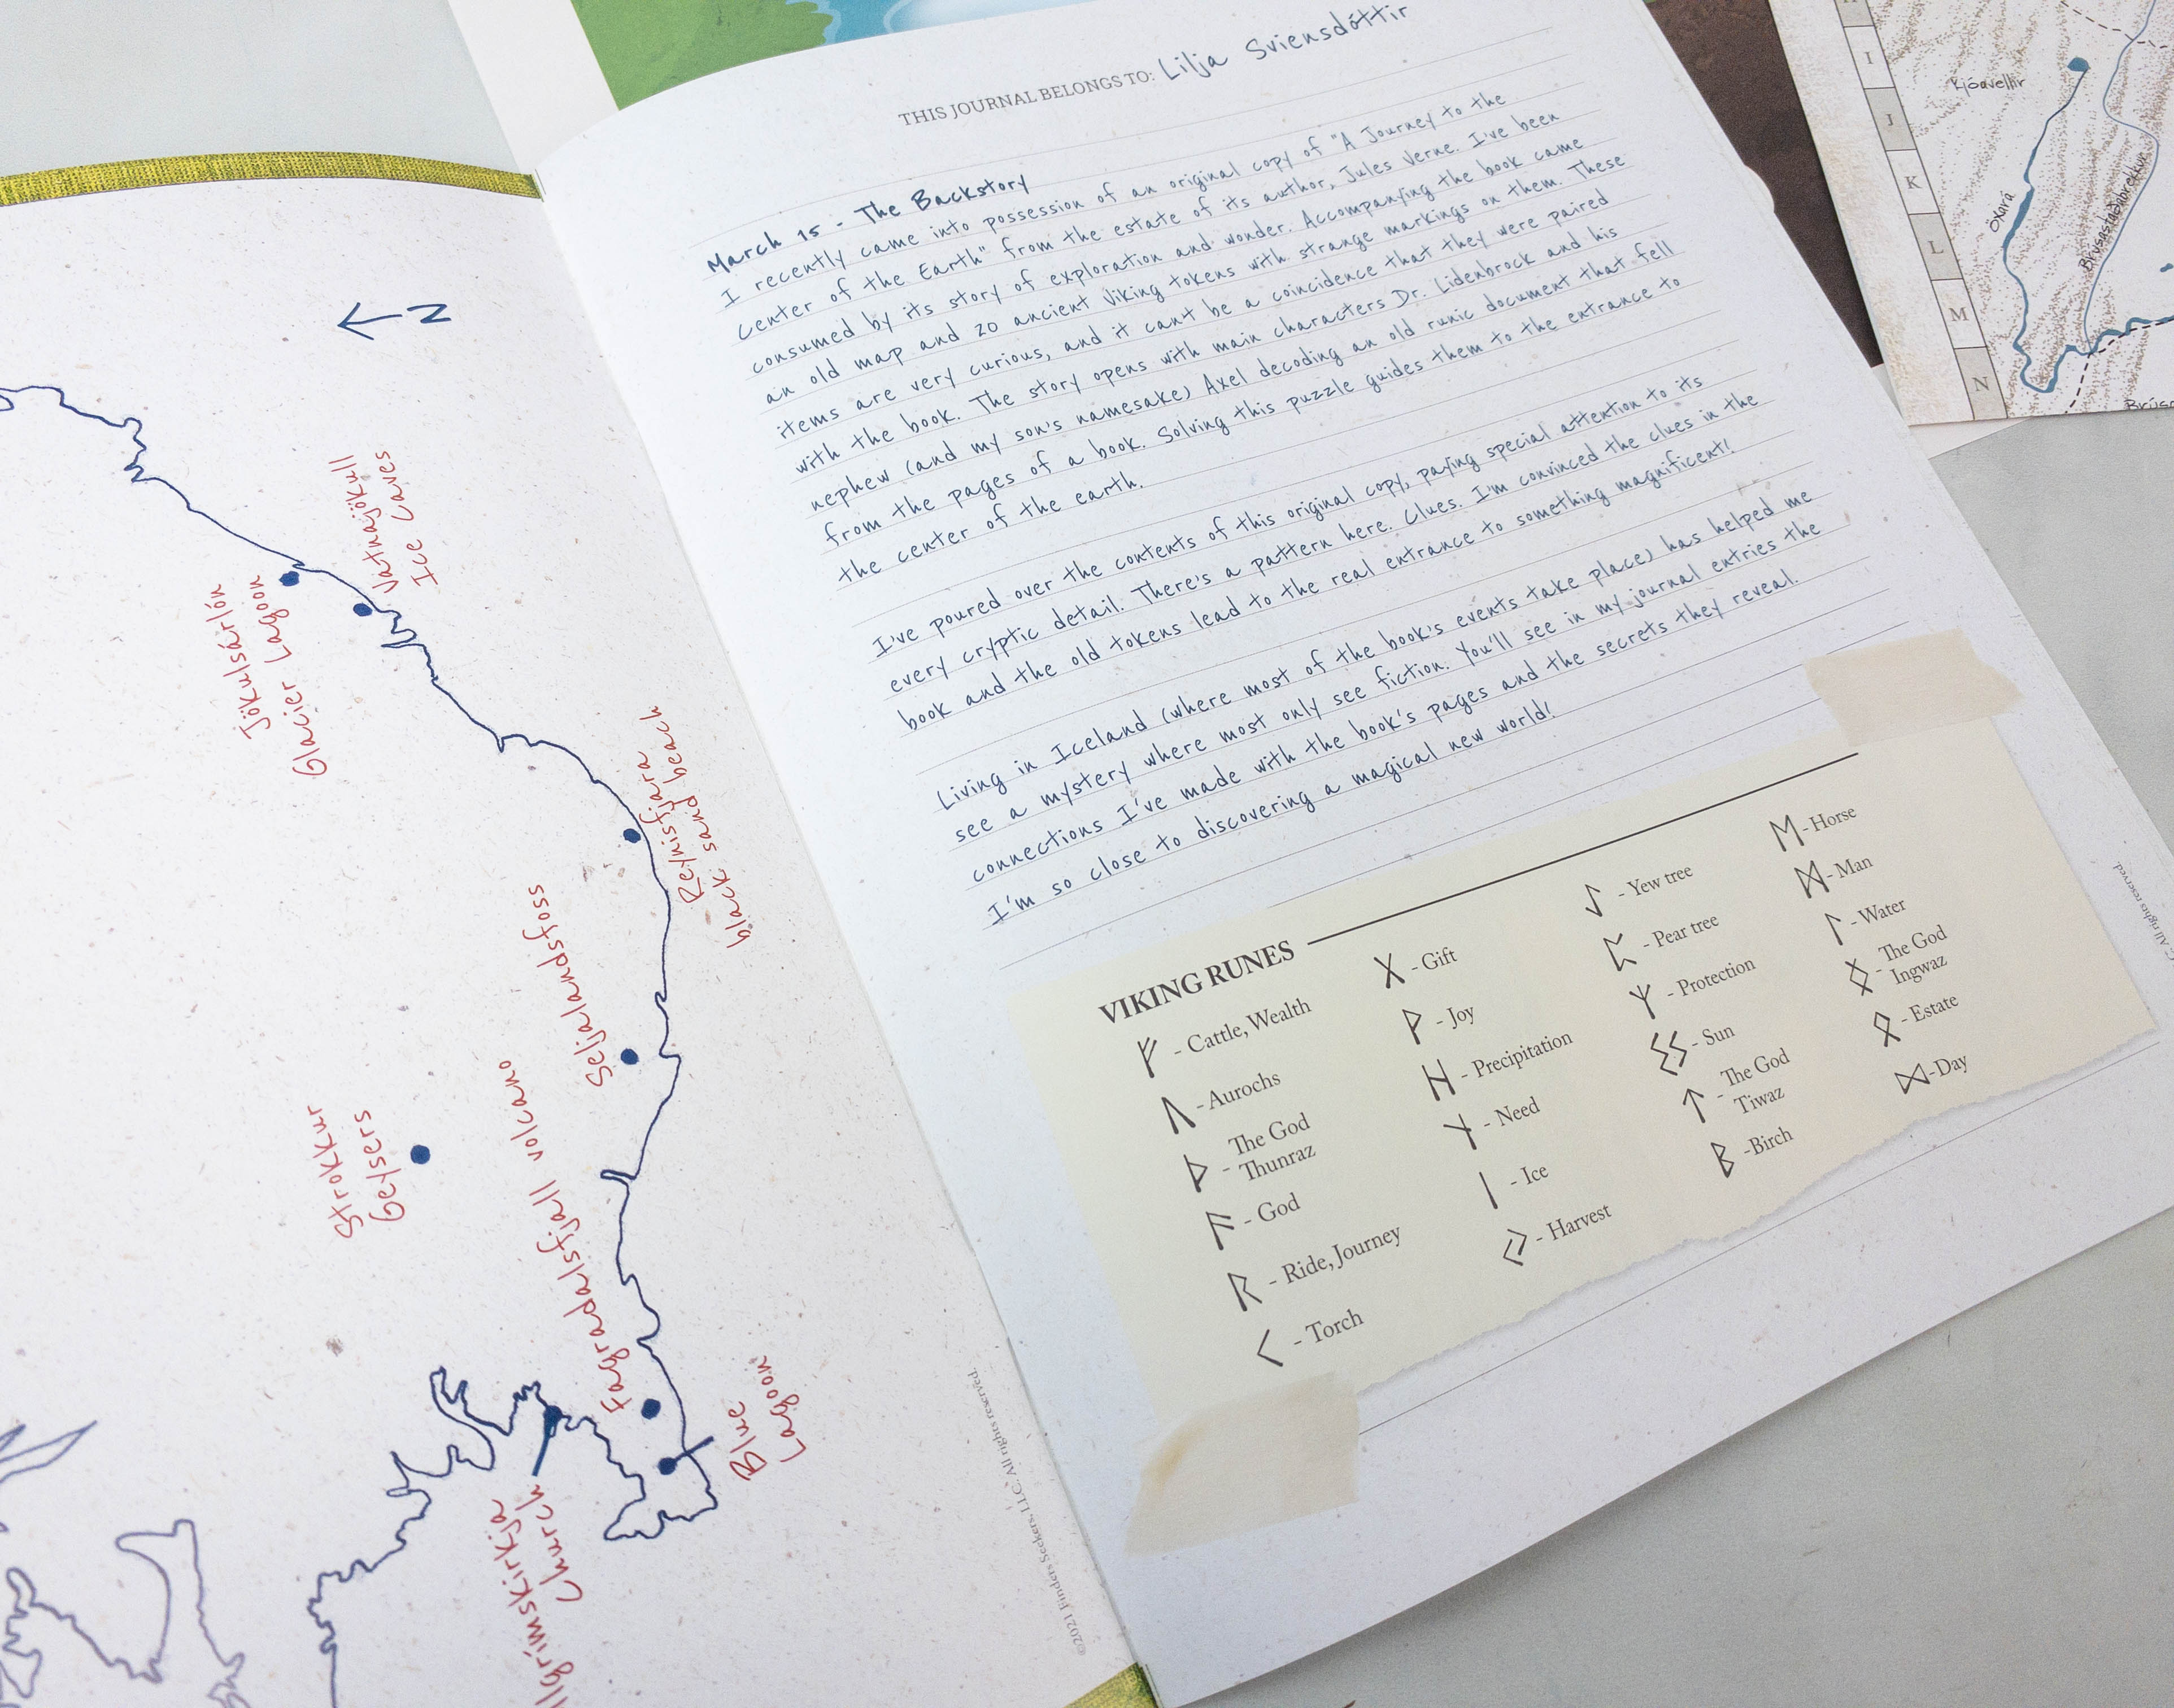 N
Vatnajökull
Ice Caves
Jökulsárlón
Glacier Lagoon
Reynisfjara
black sand beach
Seljalandsfoss
Strokkur
Geysers
Fagradalsfjall volcano
Blue
Lagoon
Church
©2021 Finders Seekers, LLC. All rights reserved.
THIS JOURNAL BELONGS TO: Lilja Sviensdóttir
March 15 - The Backstory
I recently came into possession of an original copy of "A Journey to the
Center of the Earth" from the estate of its author, Jules Verne. I've been
consumed by its story of exploration and wonder. Accompanying the book came
an old map and 20 ancient Viking tokens with strange markings on them. These
items are very curious, and it can't be a coincidence that they were paired
with the book. The story opens with main characters Dr. Lidenbrock and his
nephew (and my son's namesake) Axel decoding an old runic document that fell
from the pages of a book. Solving this puzzle guides them to the entrance to
the center of the earth.
I've poured over the contents of this original copy, paying special attention to its
every cryptic detail. There's a pattern here. Clues. I'm convinced the clues in the
book and the old tokens lead to the real entrance to something magnificent!
Living in Iceland (where most of the book's events take place) has helped me
see a mystery where most only see fiction. You'll see in my journal entries the
connections I've made with the book's pages and the secrets they reveal.
I'm so close to discovering a magical new world!
VIKING RUNES
ᚠ - Cattle, Wealth
ᚢ - Aurochs
ᚦ - The God
Thunraz
ᚨ - God
ᚱ - Ride, Journey
ᚲ - Torch
ᚷ - Gift
ᚹ - Joy
ᚺ - Precipitation
ᚾ - Need
ᛁ - Ice
ᛃ - Harvest
ᛇ - Yew tree
ᛈ - Pear tree
ᛉ - Protection
ᛊᛊ - Sun
ᛏ - The God
Tiwaz
ᛒ - Birch
ᛖ - Horse
ᛗ - Man
ᛚ - Water
ᛜ - The God
Ingwaz
ᛟ - Estate
ᛞ - Day
All rights reserved.
I
J
K
L
M
N
Öxará